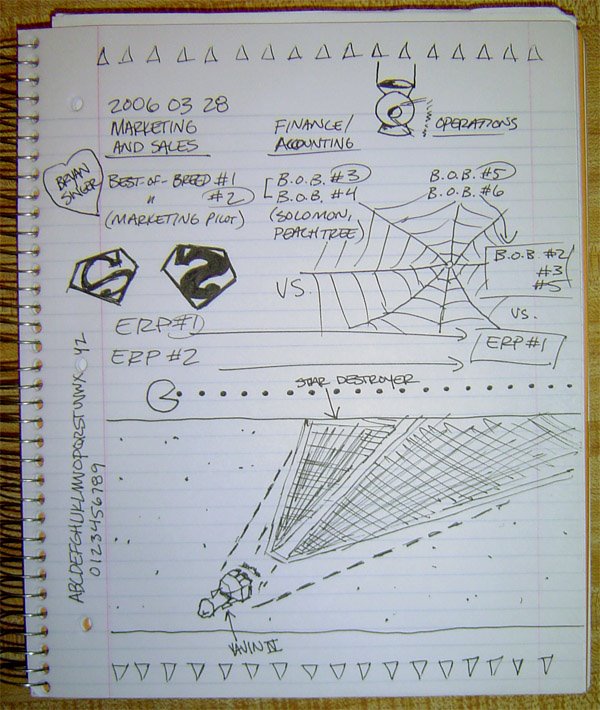 2006 03 28
MARKETING
AND SALES
FINANCE/
ACCOUNTING
OPERATIONS
BRYAN
SINGER
BEST-OF-BREED #1
" #2
(MARKETING PILOT)
B.O.B. #3
B.O.B. #4
(SOLOMON,
PEACHTREE)
B.O.B. #5
B.O.B. #6
B.O.B. #2
#3
#5
S
VS.
VS.
ERP #1
ERP #1
ERP #2
STAR DESTROYER
YAVIN IV
ABCDEFGHIJKLMNOPQRSTUVWX YZ
0123456789